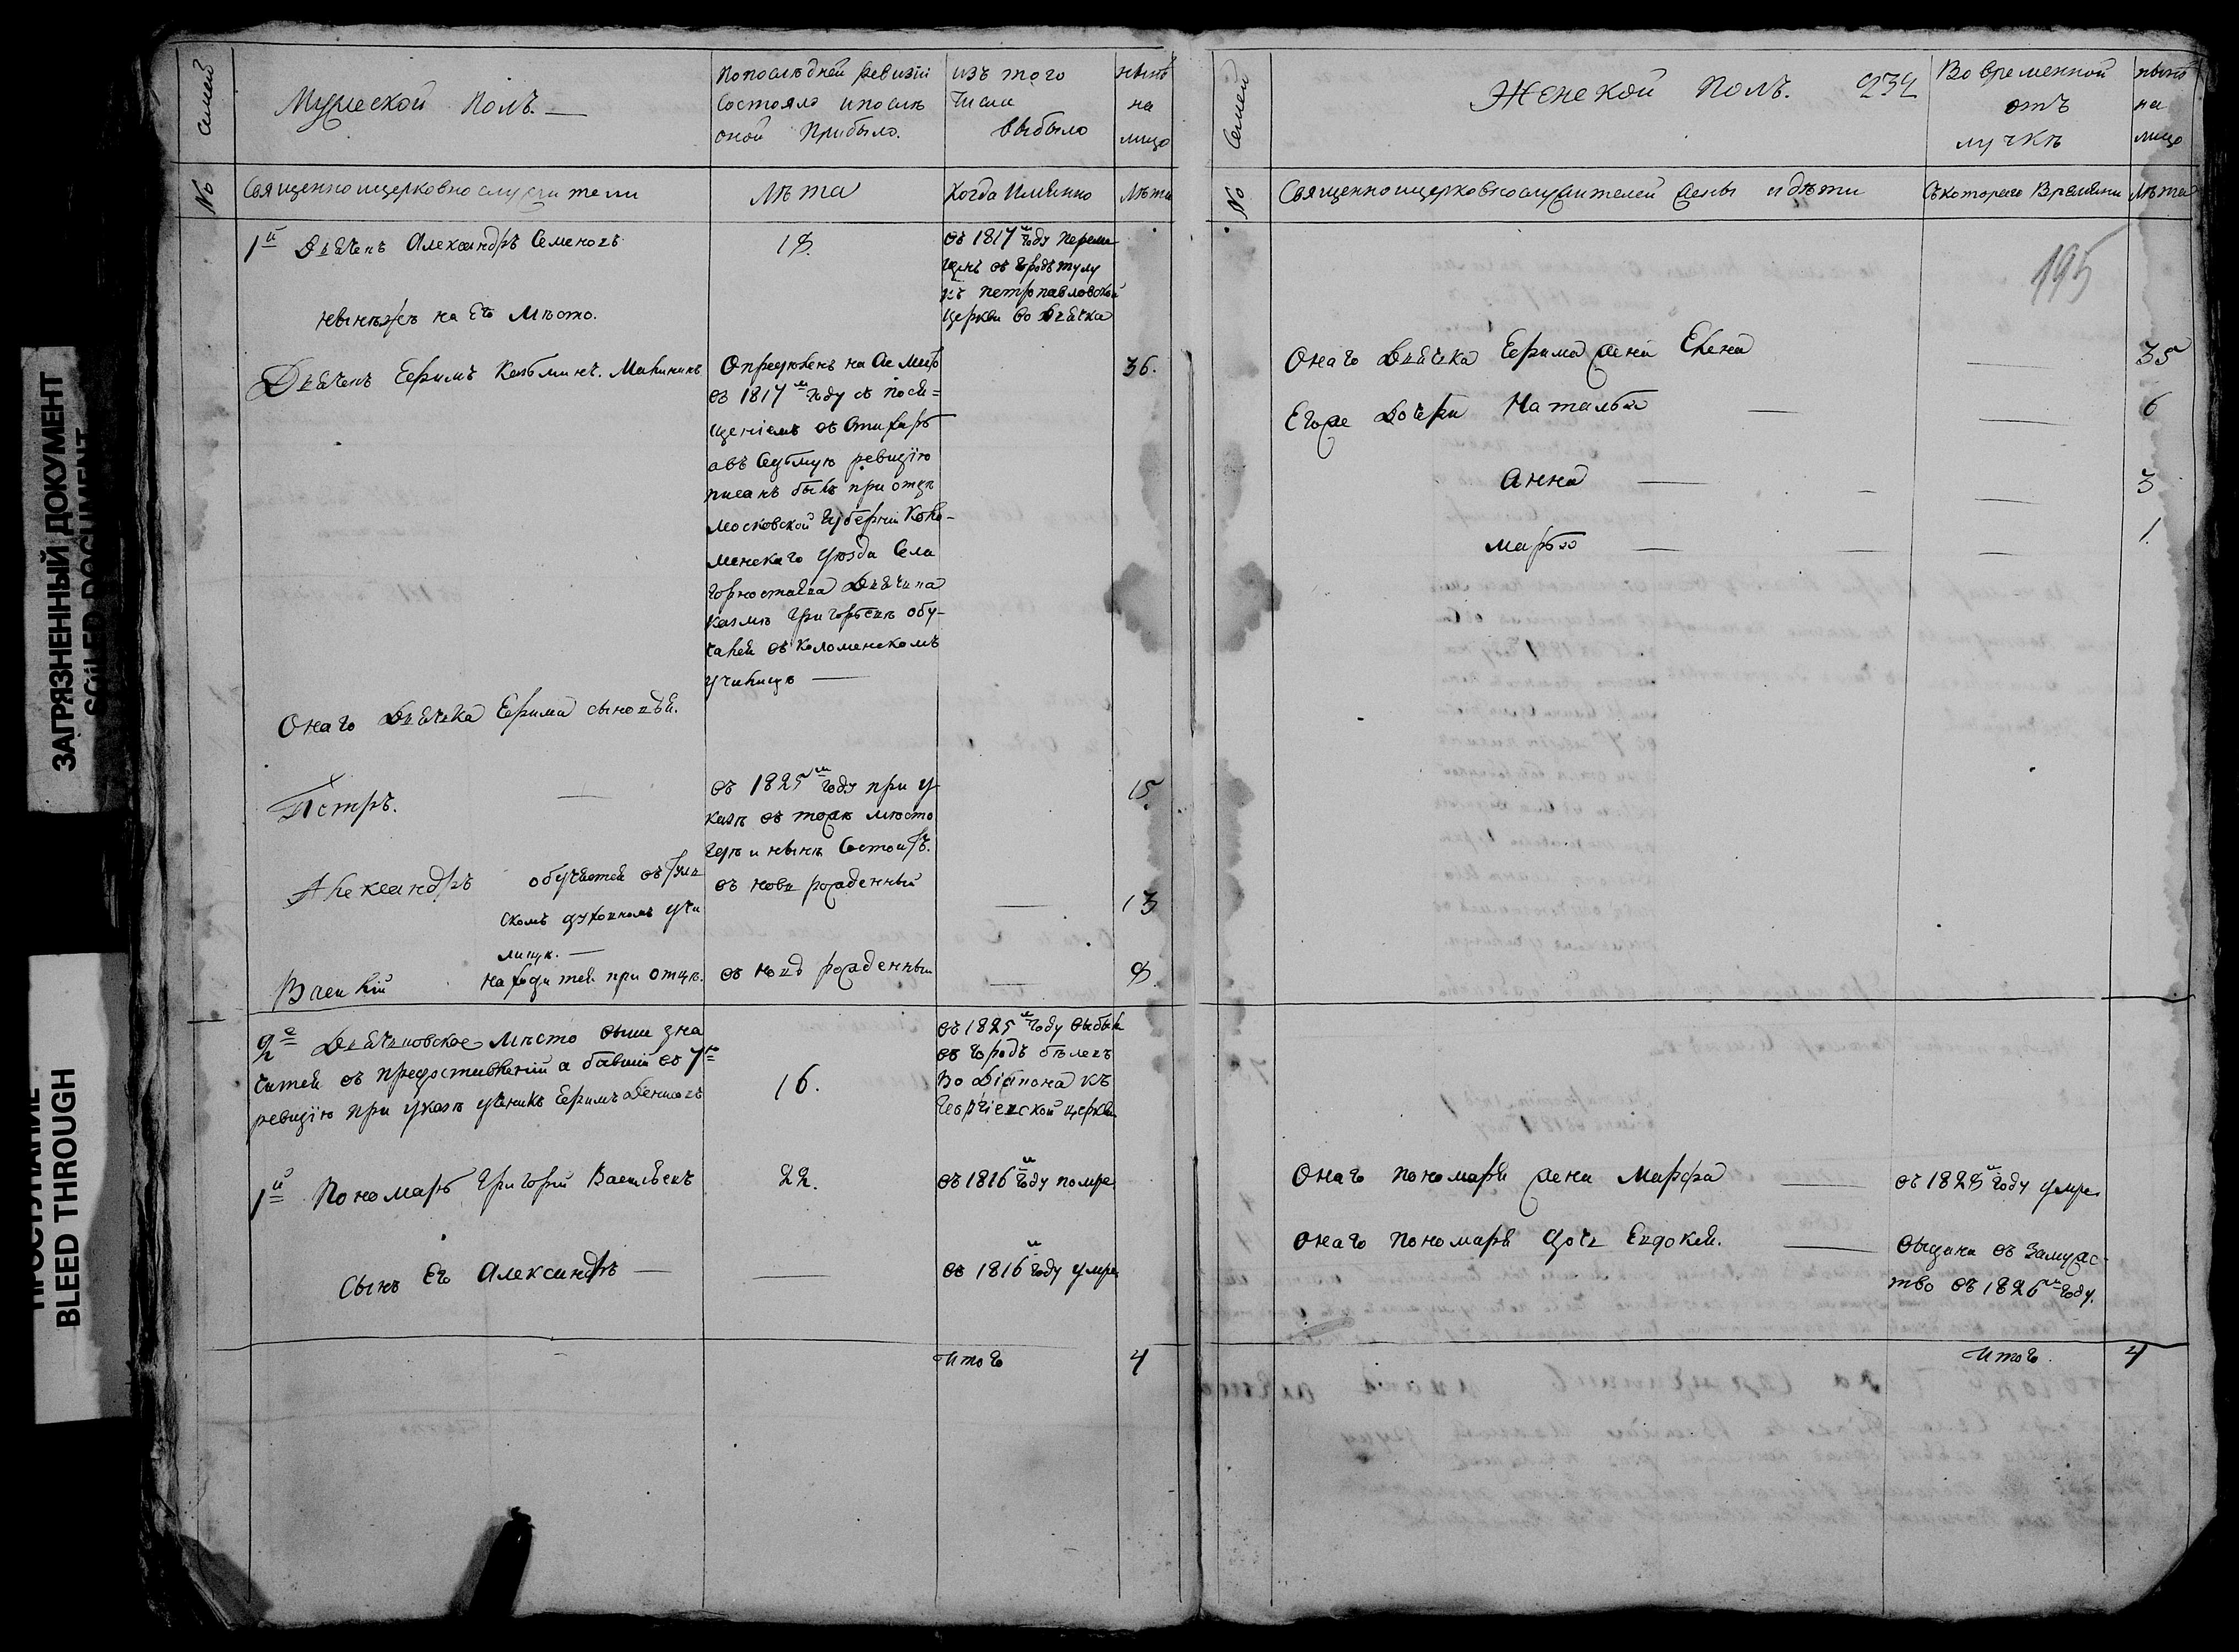 ЗАГРЯЗНЕННЫЙ ДОКУМЕНТ
SOILED DOCUMENT
BLEED THROUGH
семей
Мужеской полъ. —
По послѣдней ревизіи
состояло и послѣ
оной прибыло.
изъ того
числа
выбыло
нынѣ
на
лицо
№
Священно и церковнослужители
Лѣта
Когда имянно
Лѣта
1й Дьячекъ Александръ Семеновъ
18.
въ 1817м году переме
щенъ въ городъ тулу
къ петропавловской
церкви во дьячка
нынѣже на его мѣсто.
Дьячекъ Ефимъ Козьминъ.
Определенъ на сіе место
въ 1817м году съ посвя=
щеніемъ въ стихарь
авъ седьмую ревизію
писанъ былъ при отцѣ
московской губерніи Коло-
менскаго уѣзда села
дьячка
Козмѣ Григорьевѣ обу-
чался въ коломенскомъ
училищѣ —
36.
Онаго дьячка Ефима сыновья.
Петръ. —
въ 1825м году при у
казѣ въ томъ мѣсто
гдѣ и нынѣ состоитъ.
15.
Александръ
обучается въ туль
скомъ духовномъ учи
лищѣ. —
въ новѣ рожденный
—
13
Василій
находится при отцѣ.
въ новѣ рожденный
—
8.
2е Дьячковское мѣсто выше зна
чится въ предоставленіи а бывшій въ 7ю
ревизію при указѣ Ефимъ Денисовъ
16.
въ 1825м году выбылъ
въ городъ бѣлевъ
во діакона къ
Георгіевской церкви
1й Пономарь Григорій Васильевъ
22.
въ 1816м году помре
Сынъ его Александръ —
—
въ 1816м году умре
Итого
4
Семей
Женской полъ.
232
Во временной
отъ
лучкѣ
нынѣ
на
лицо
№
Священно и церковнослужителей жены и дѣти
Съ котораго времяни
Лѣта
195
Онаго дьячка Ефима жена Елена
—
35
Егоже дочери Наталья —
—
6
Анна —
—
3
Марья —
—
1.
Онаго пономаря жена Марфа —
въ 1828м году умре
Онаго пономаря дочь Евдокея. —
выдана въ замужс-
тво въ 1826м году.
Итого.
4